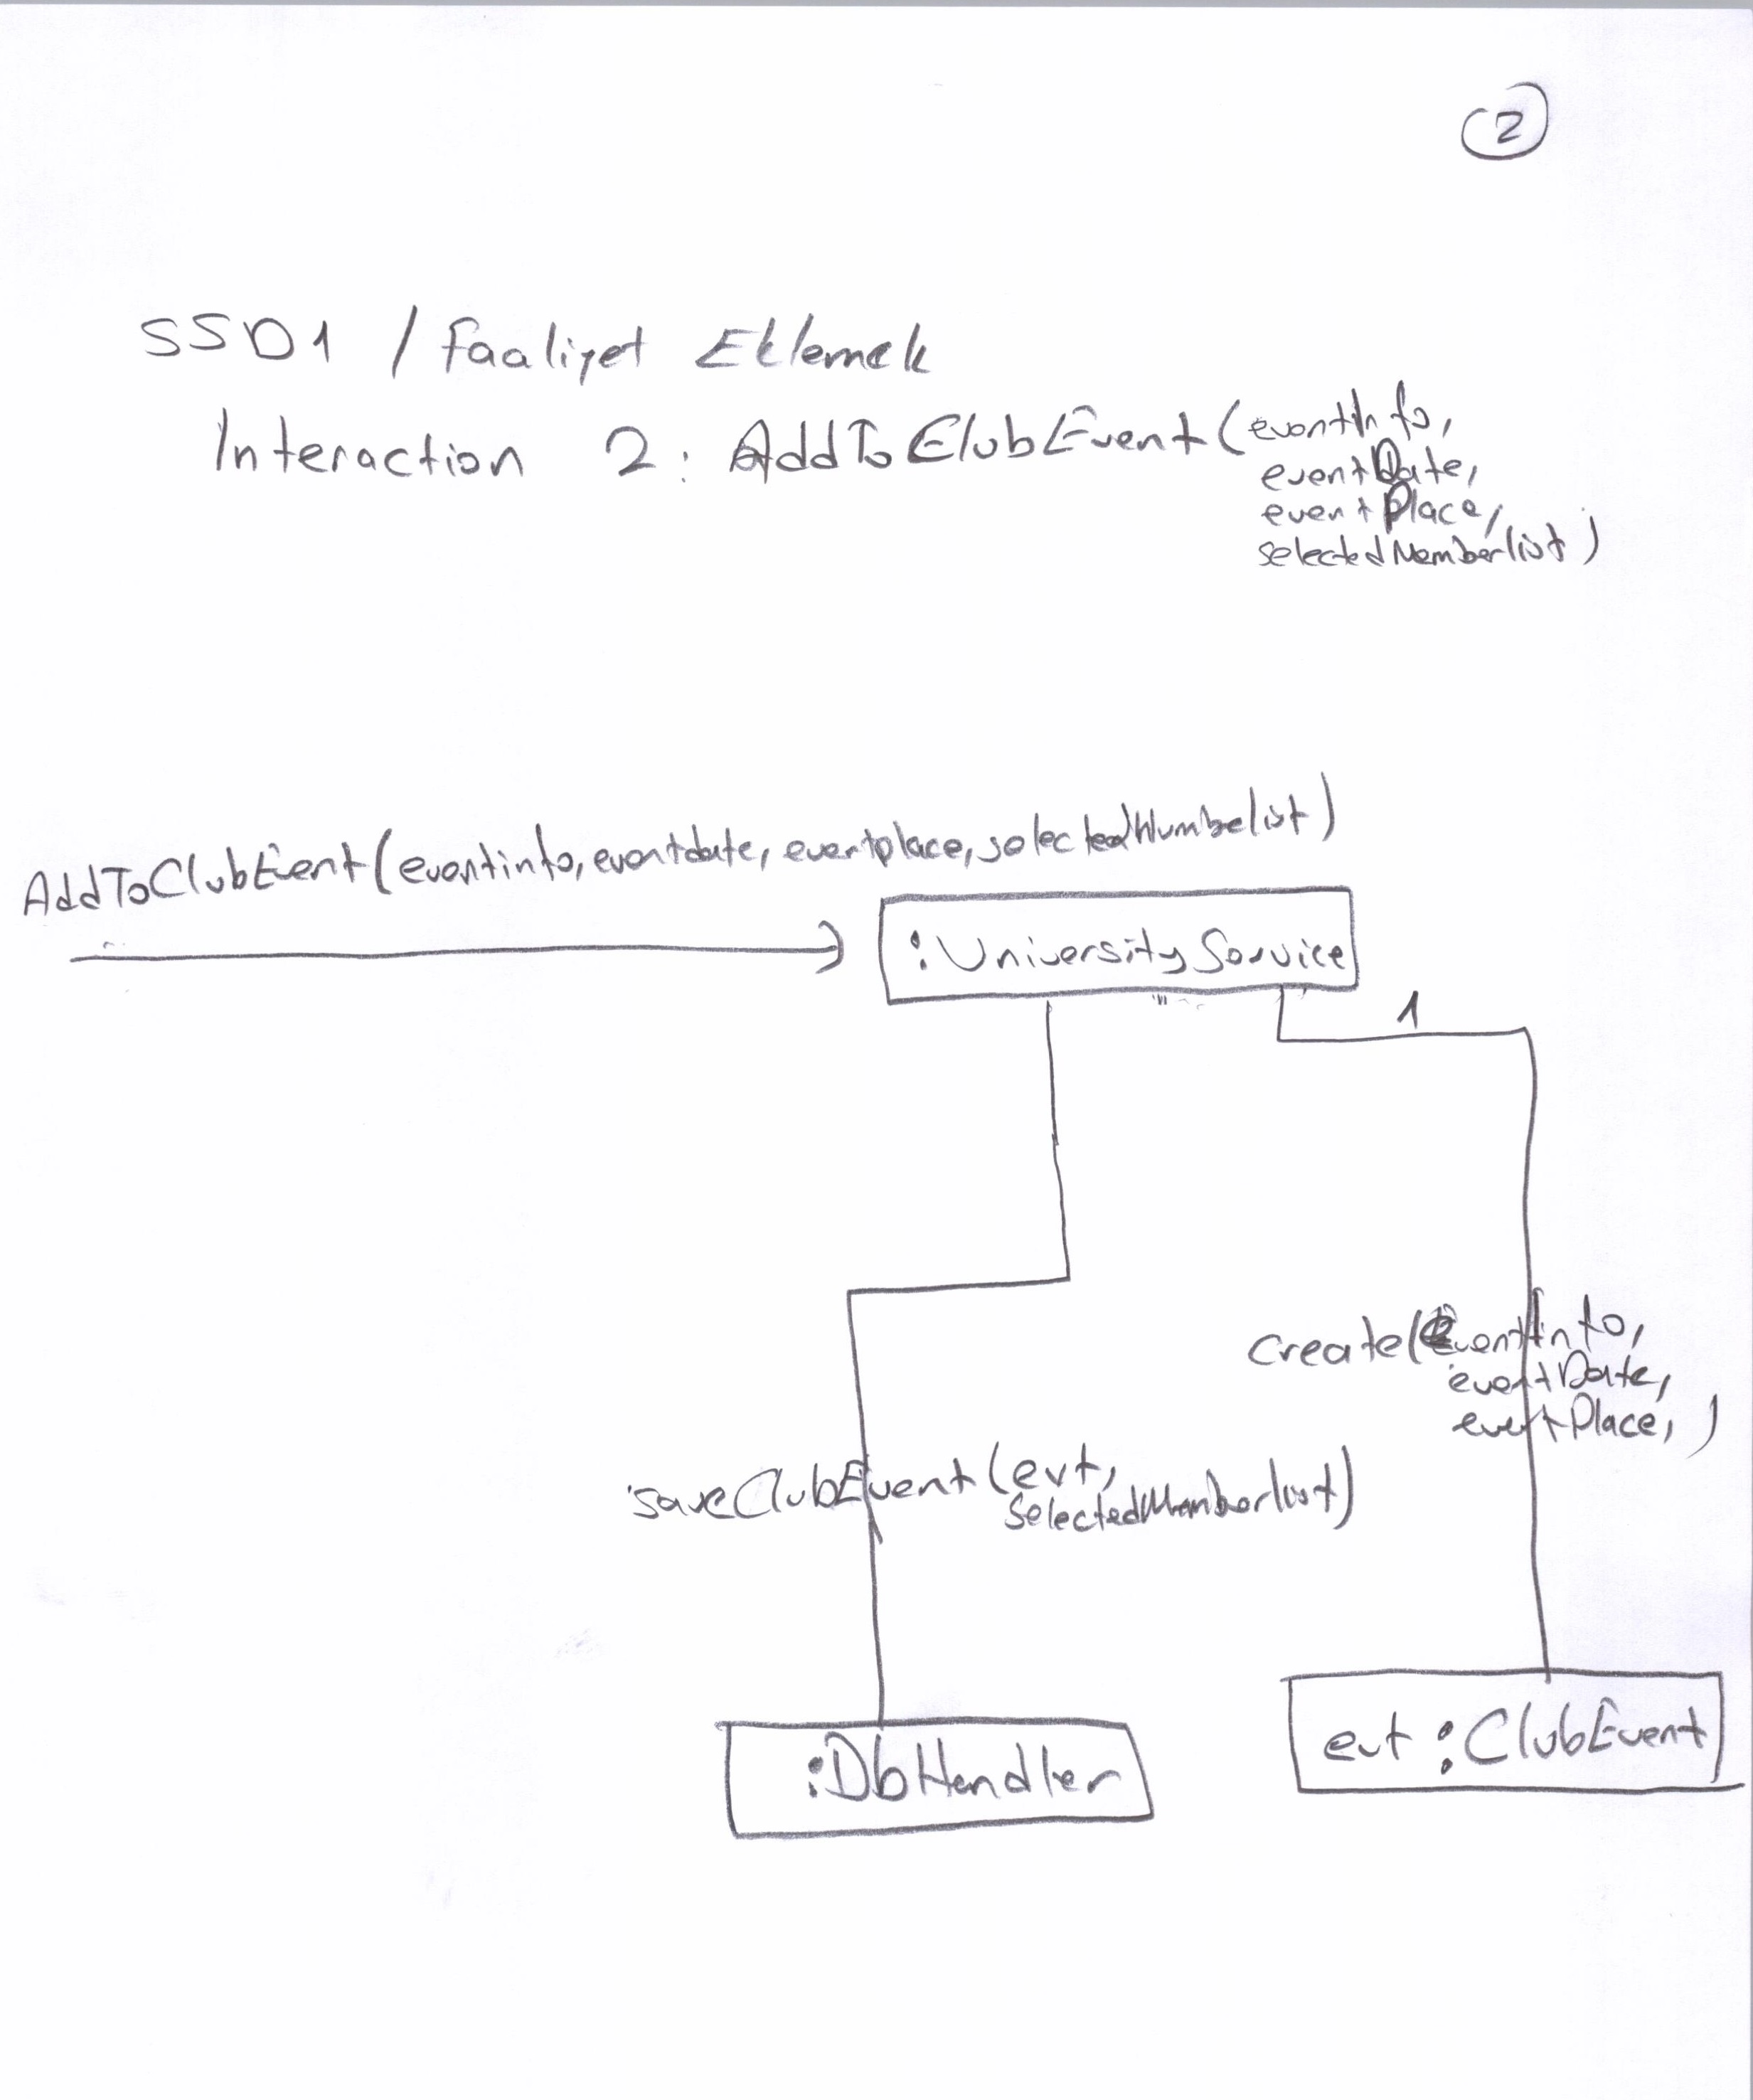 2
SSD1 / Faaliyet Eklemek
Interaction 2: AddToClubEvent(eventInfo,
eventDate,
eventPlace,
selectedMemberlist)
AddToClubEvent(eventinfo, eventdate, eventplace, selectedNumbelist)
:UniversityService
1
create(eventInfo,
eventDate,
eventPlace, )
saveClubEvent(evt,
selectedMemberlist)
evt :ClubEvent
:DbHandler